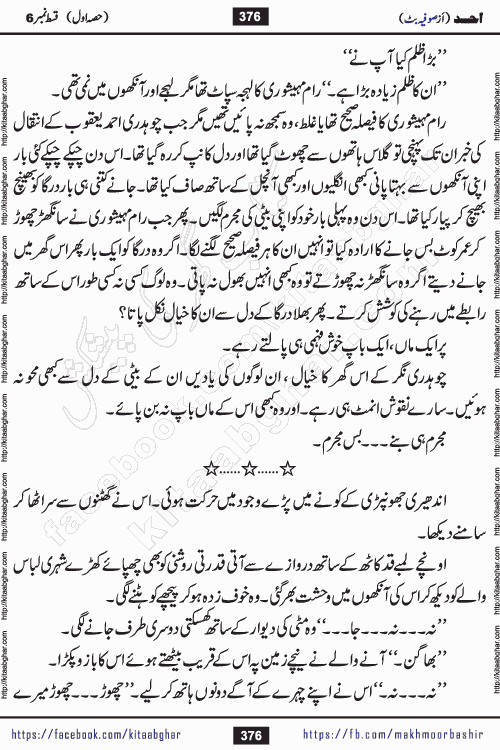 احمد (از صوفیہ بٹ) 376 (حصہ اول) قسط نمبر 6
’’بڑا ظلم کیا آپ نے‘‘
’’ان کا ظلم زیادہ بڑا ہے۔‘‘ رام مہیشوری کا لہجہ سپاٹ تھا مگر لہجے اور آنکھوں میں نمی تھی۔
رام مہیشوری کا فیصلہ صحیح تھا یا غلط، وہ سمجھ نہ پائیں تھیں مگر جب چوہدری احمد یعقوب کے انتقال
کی خبر ان تک پہنچی تو گلاس ہاتھوں سے چھوٹ گیا تھا اور دل کانپ کر رہ گیا تھا۔ اس دن چپکے چپکے کئی بار
اپنی آنکھوں سے بہتا پانی بھی انگلیوں اور کبھی آنچل کے ساتھ صاف کیا تھا۔ جانے کتنی ہی بار درگا کو بھینچ
بھینچ کر پیار کیا تھا۔ اس دن وہ پہلی بار خود کو اپنی بیٹی کی مجرم لگیں۔ پھر جب رام مہیشوری نے سانگھڑ چھوڑ
کر عمر کوٹ بس جانے کا ارادہ کیا تو انہیں ان کا ہر فیصلہ صحیح لگنے لگا۔ اگر وہ درگا کو ایک بار پھر اس گھر میں
جانے دیتے اگر وہ سانگھڑ نہ چھوڑتے تو وہ کبھی انہیں بھول نہ پاتی۔ وہ لوگ کسی نہ کسی طور اس کے ساتھ
رابطے میں رہنے کی کوشش کرتے۔ پھر بھلا درگا کے دل سے ان کا خیال نکل پاتا؟
پر ایک ماں، ایک باپ خوش فہمی ہی پالتے رہے۔
چوہدری نگر کے اس گھر کا خیال، ان لوگوں کی یادیں ان کے بیٹی کے دل سے کبھی محو نہ
ہوئیں۔ سارے نقوش انمٹ ہی رہے۔ اور وہ کبھی اس کے ماں باپ نہ بن پائے۔
مجرم ہی بنے۔۔۔ بس مجرم۔
☆......☆......☆
اندھیری جھونپڑی کے کونے میں پڑے وجود میں حرکت ہوئی۔ اس نے گھٹنوں سے سر اٹھا کر
سامنے دیکھا۔
اونچے لمبے قد کاٹھ کے ساتھ دروازے سے آتی قدرتی روشنی کو بھی چھپائے کھڑے شہری لباس
والے کو دیکھ کر اس کی آنکھوں میں وحشت بھر گئی۔ وہ خوف زدہ ہو کر پیچھے کو ہٹنے لگی۔
’’نہ۔۔۔نہ۔۔۔جا۔۔۔‘‘ وہ مٹی کی دیوار کے ساتھ کھسکتی دوسری طرف جانے لگی۔
’’بھاگن۔‘‘ آنے والے نے نیچے زمین پہ اس کے قریب بیٹھتے ہوئے اس کا بازو پکڑا۔
’’نہ۔۔۔نہ۔‘‘ اس نے اپنے چہرے کے آگے دونوں ہاتھ کر لیے۔ ’’چھوڑ۔۔۔چھوڑ میرے
https://facebook.com/kitaabghar 376 https://fb.com/makhmoorbashir
http://kitaabghar.com